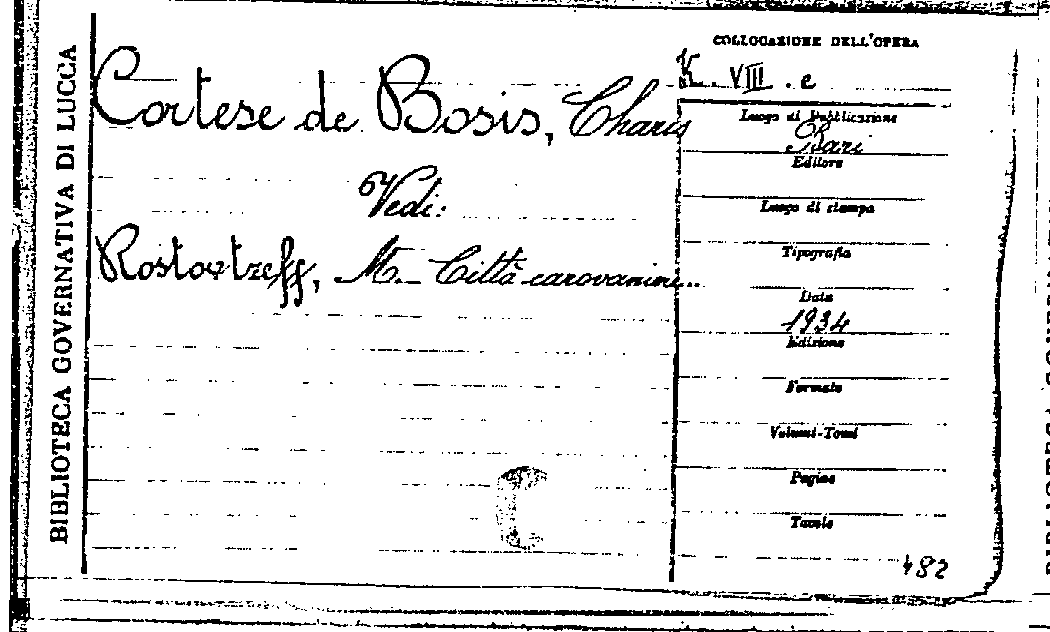 BIBLIOTECA GOVERNATIVA DI LUCCA
Cortese de Bosis, Charis
Vedi:
Rostovtzeff, M. - Città carovanine..
C
COLLOCAZIONE DELL'OPERA
K. VIII. e
Luogo di Pubblicazione
Bari
Editore
Luogo di stampa
Tipografia
Data
1934
Edizione
Formato
Volumi-Tomi
Pagine
Tavole
482